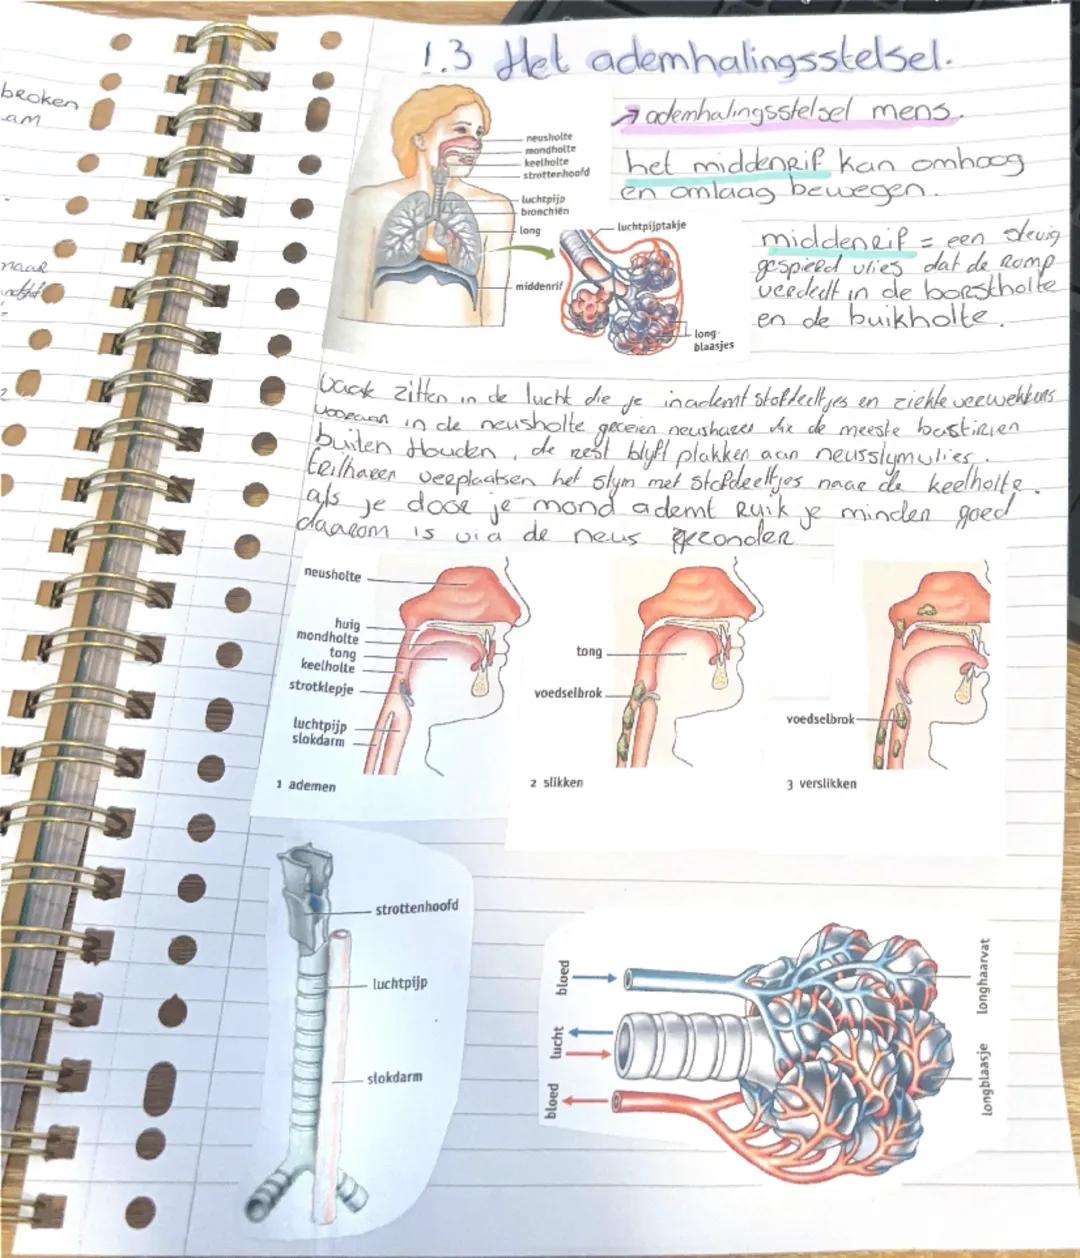 broken
am
naar
1.3 Het ademhalingsstelsel.
→ ademhalingsstelsel mens.
het middenrif kan omhoog
en omlaag bewegen.
neusholte
mondholte
keelholte
strottenhoofd
luchtpijp
bronchiën
long
middenrif
luchtpijptakje
long-
blaasjes
middenrif = een stevig
gespierd vlies dat de romp
verdeelt in de borstholte
en de buikholte.
vaak zitten in de lucht die je inademt stofdeeltjes en ziekteverwekkers
vooraan in de neusholte neusharen die de meeste
buiten Houden, de rest blijft plakken aan neusslymvlies.
trilharen verplaatsen het slym met stofdeeltjes naar de keelholte.
als je door je mond ademt Ruik je minder goed
daarom is via de neus gezonder
neusholte
huig
mondholte
tong
keelholte
strotklepje
luchtpijp
slokdarm
1 ademen
tong
voedselbrok
2 slikken
voedselbrok
3 verslikken
strottenhoofd
luchtpijp
slokdarm
bloed
lucht
bloed
longhaarvat
longblaasje